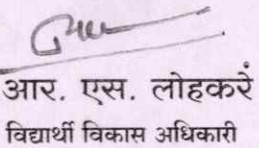 आर. एस. लोहकरें
विद्यार्थी विकास अधिकारी